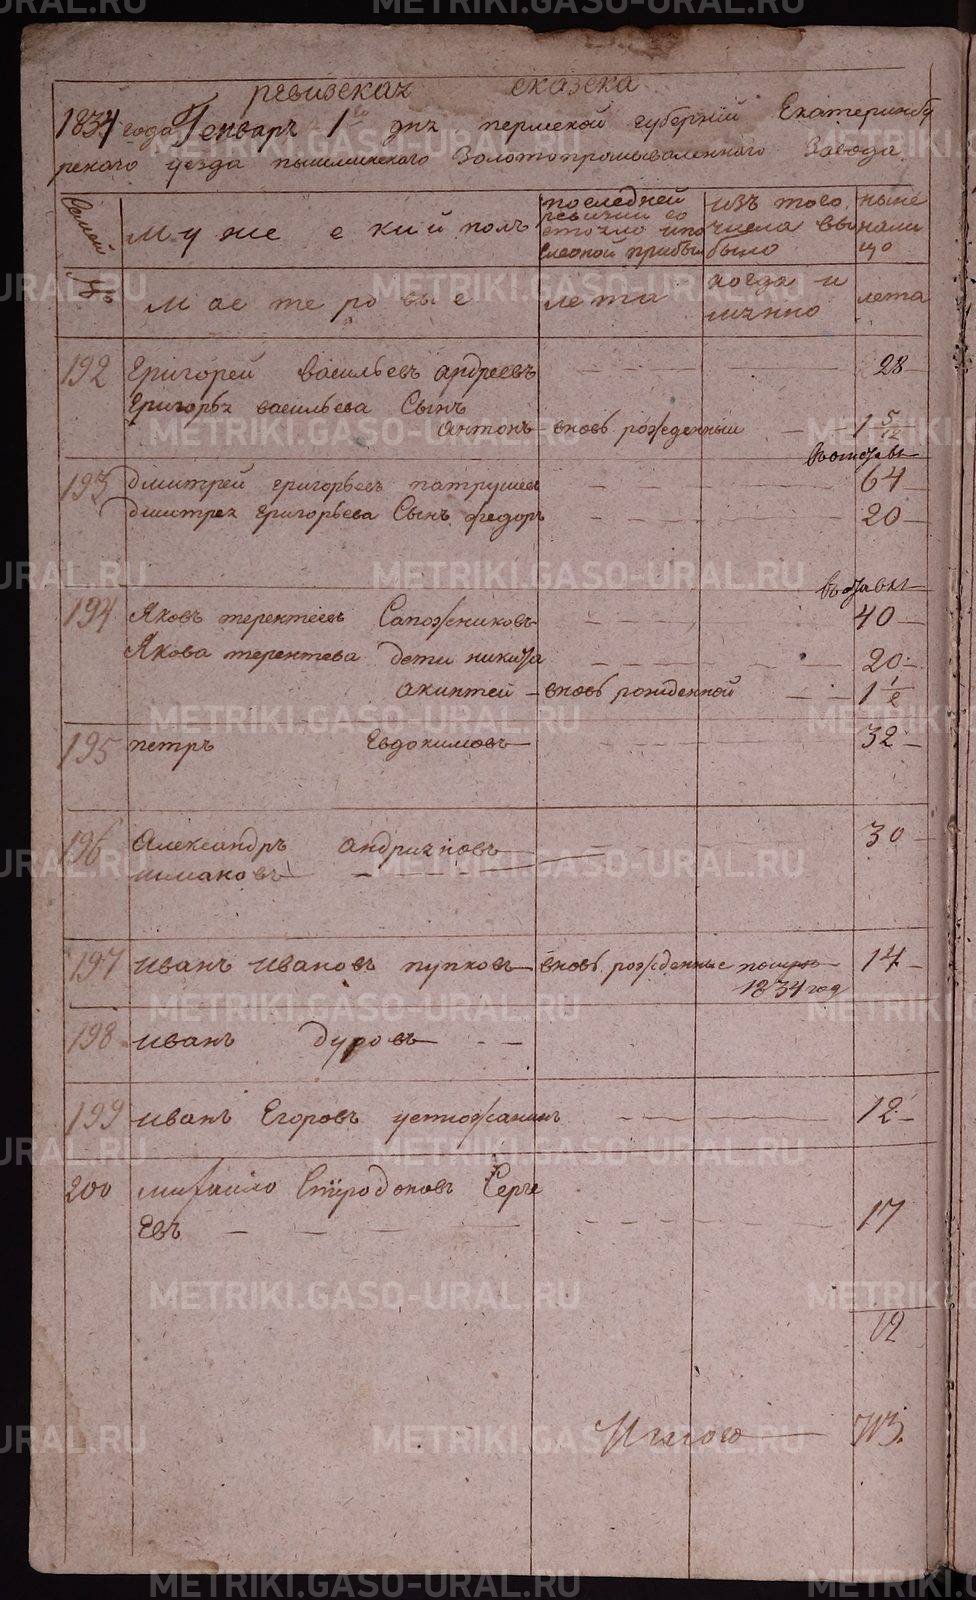 ревизская сказска
1834 года Генваря 1го дня пермской губерний Екатеринбу
рскаго уезда пышминскаго Золотопромываленного Завода
Семей
№
Мужескийполъ
последней ревизии состояло ипо слебной прибы
изъ того числа выбыло
ныне нали цо
Мастеровые
лета
когда и имянно
лета
192 Григорей васильевъ андреевъ 28
Григорья васильева Сынъ
антонъ вновь рожденный 1 5/12
въ отставк
193 дмитрей григорьевъ патрушев 64
дмитрея григорьева Сынъ федоръ 20
въ отставк
194 Яковъ терентеевъ Сапожниковъ 40
Якова терентева дети никита 20
акинтей вновь рожденной 1 1/2
195 петръ Евдокимовъ 32
196 Александръ андрияновъ 30
шмаковъ
197 иванъ ивановъ пупковъ вновь рожденные 14
1834 год
198 иванъ дуровъ
199 иванъ Егоровъ устюжанинъ 12
200 михаило Спиродоновъ Серге
евъ 17
12
Итого 713.
METRIKI.GASO-URAL.RU